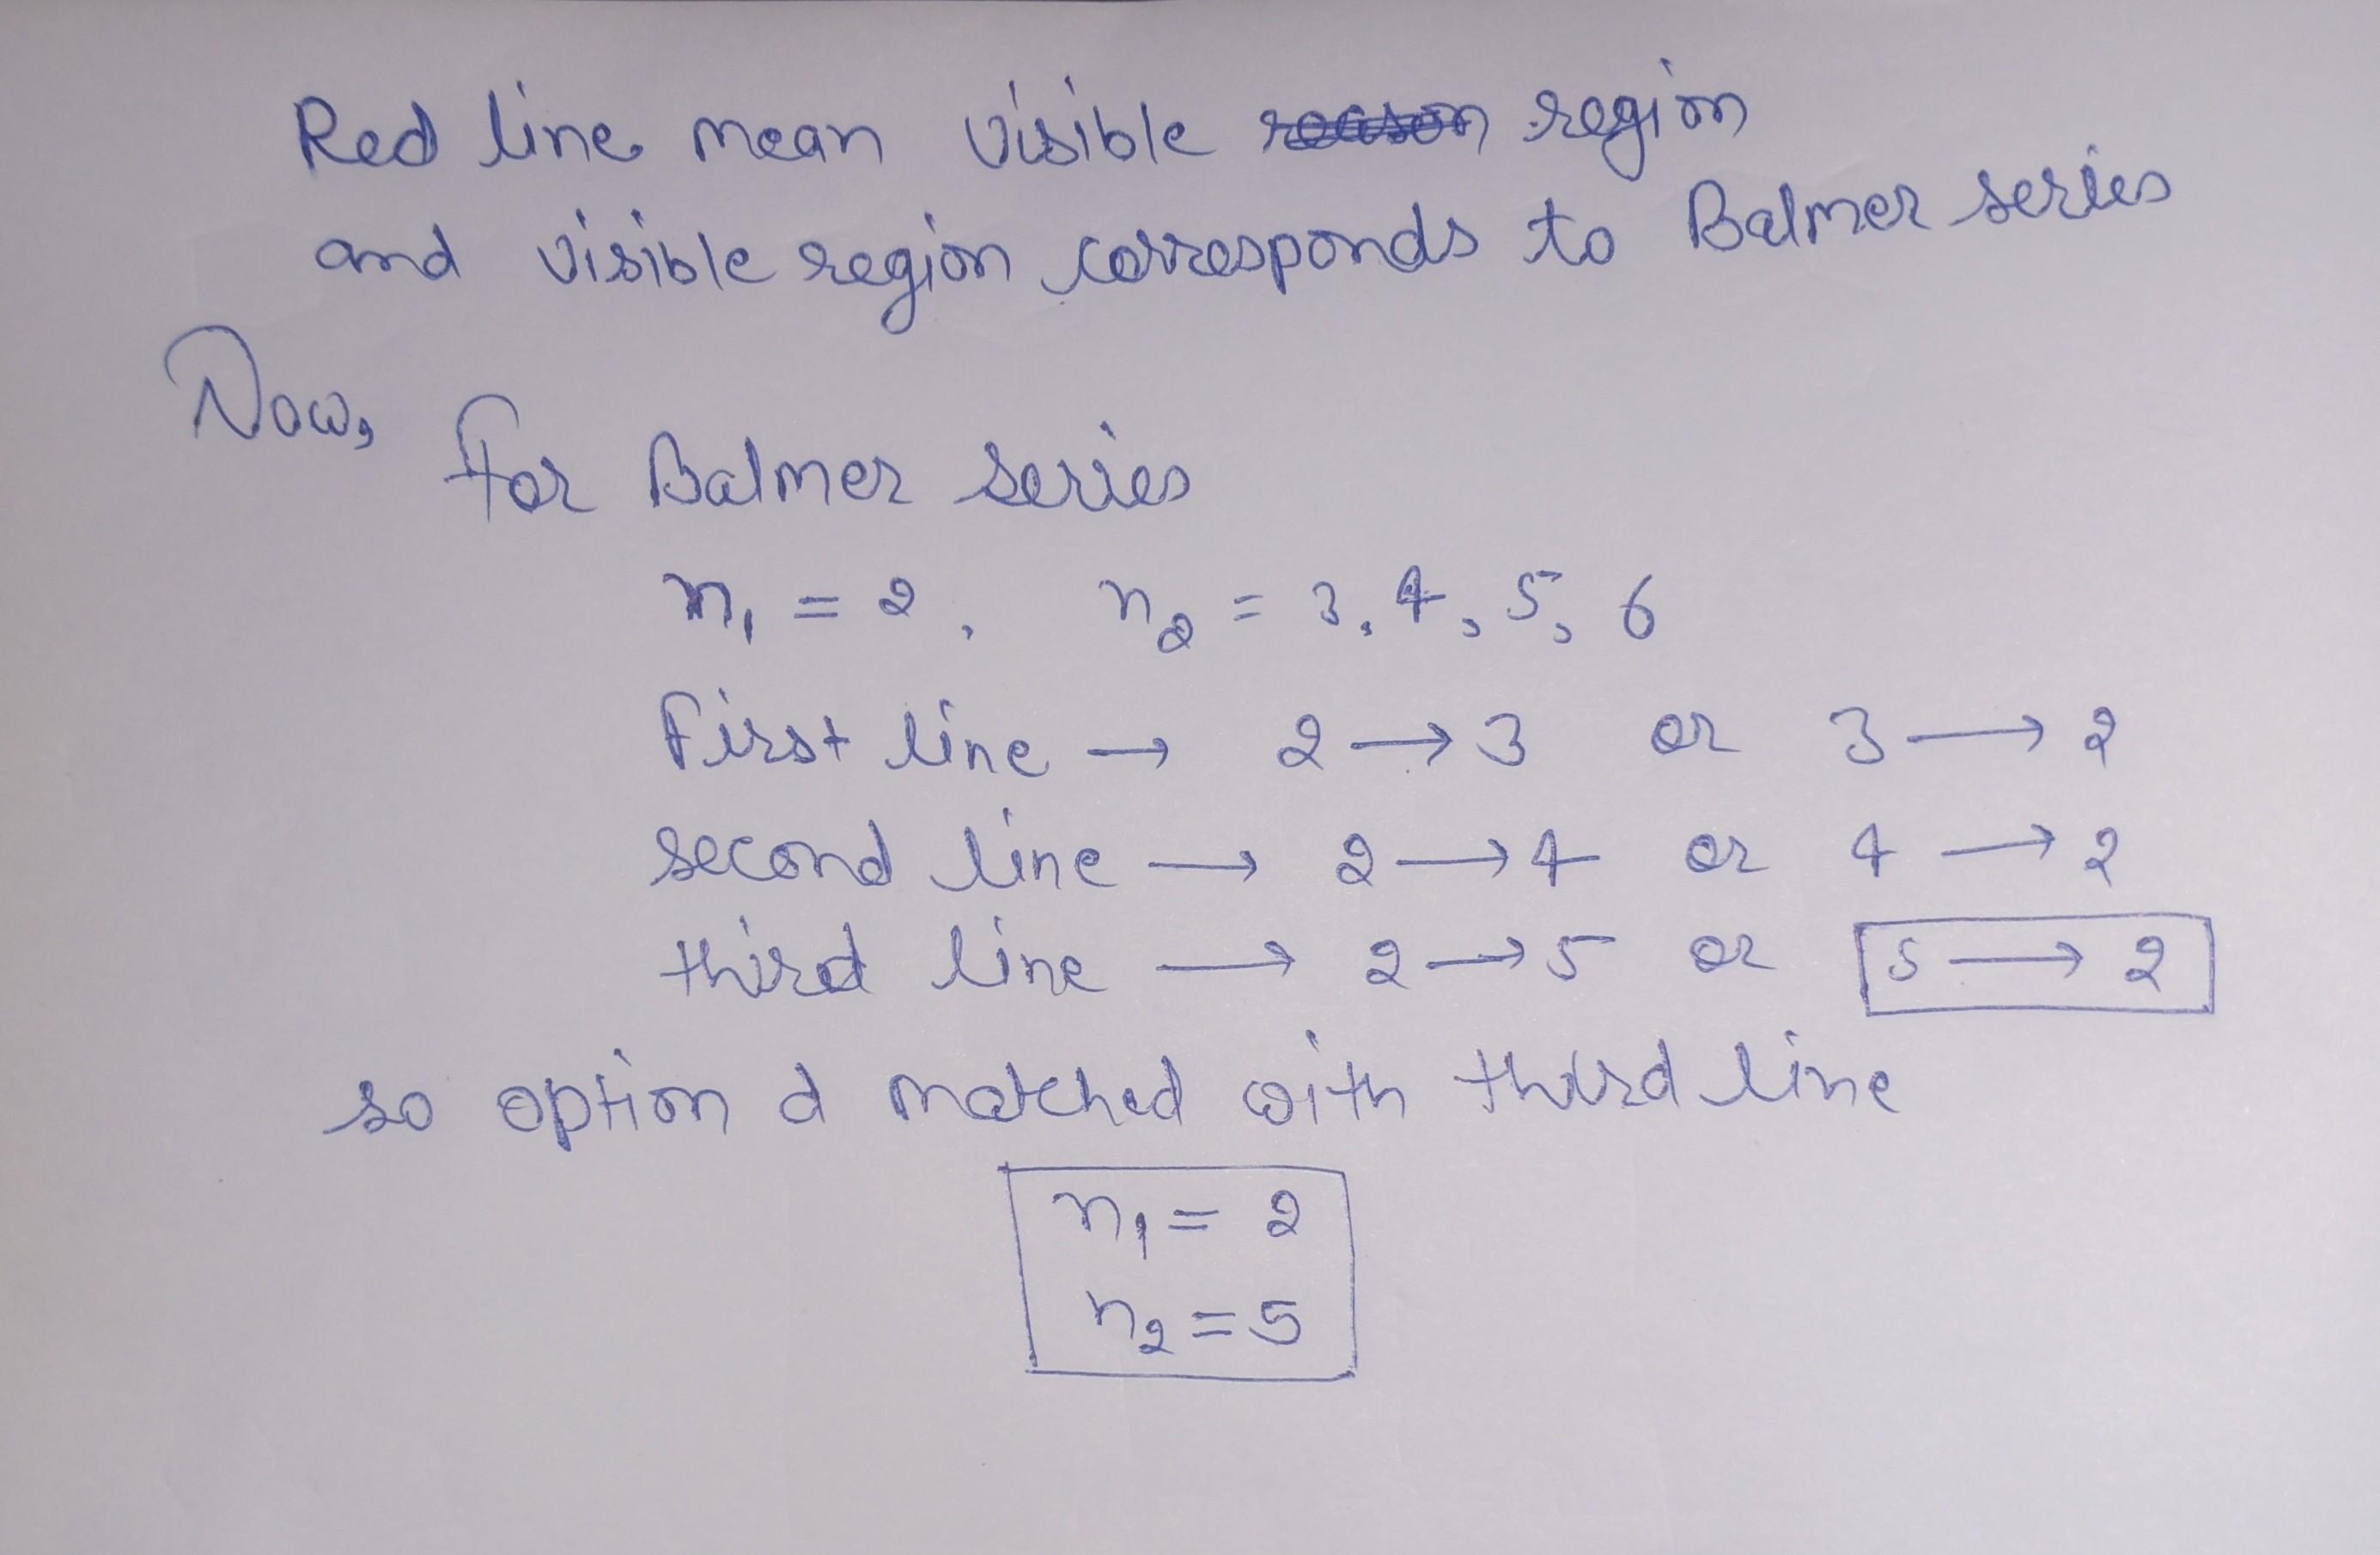 Red line mean visible region
and visible region corresponds to Balmer series
Now,
for Balmer series
n₁ = 2, n₂ = 3, 4, 5, 6
first line → 2 → 3 or 3 → 2
second line → 2 → 4 or 4 → 2
third line → 2 → 5 or 5 → 2
so option d matched with third line
n₁ = 2
n₂ = 5